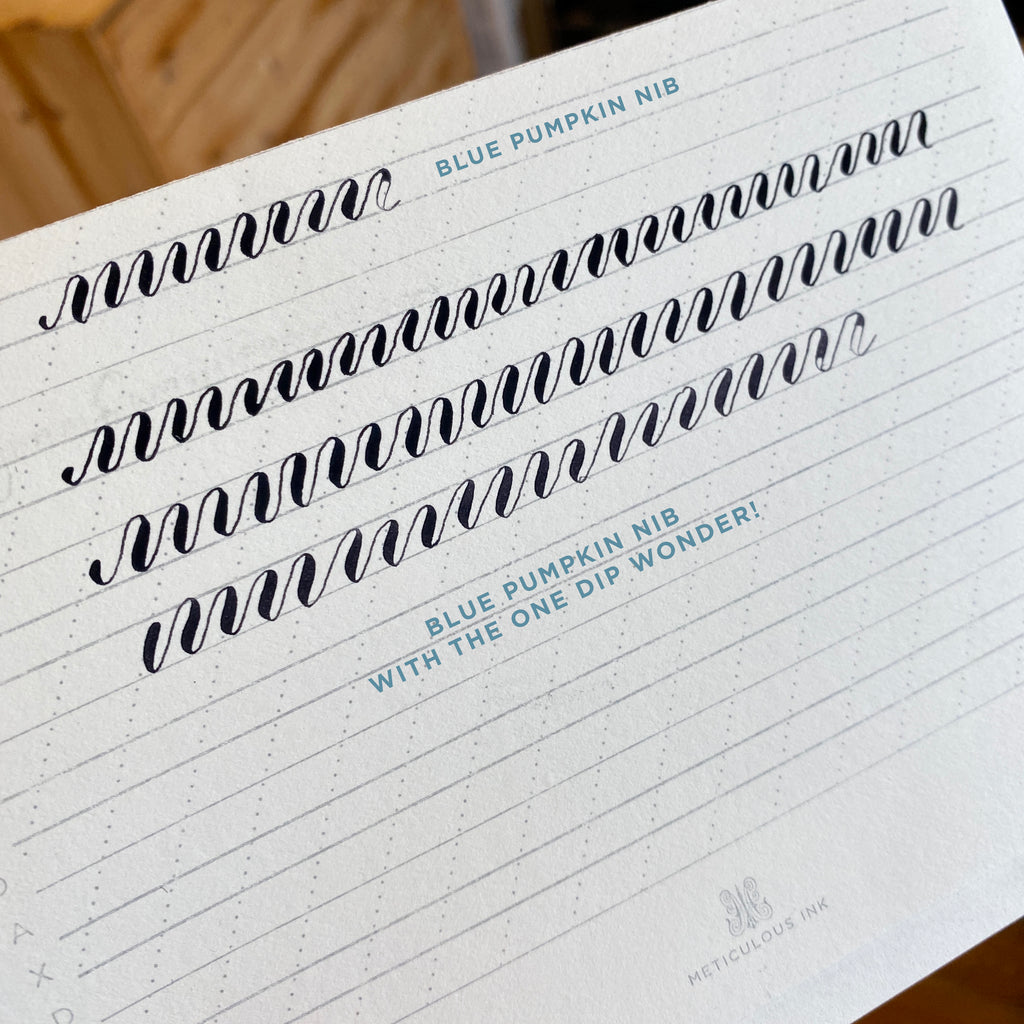 BLUE PUMPKIN NIB
BLUE PUMPKIN NIB
WITH THE ONE DIP WONDER!
A
X
D
METICULOUS INK